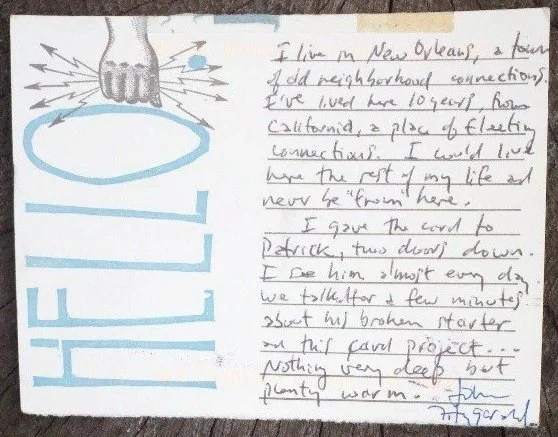 HELLO
I live in New Orleans, a town
of odd neighborhood connections.
I've lived here 10 years, from
California, a place of fleeting
connections. I would live
here the rest of my life and
never be "from" here.
I gave the card to
Patrick, two doors down.
I see him almost every day.
we talk for a few minutes
about his broken starter
or this card project...
Nothing very deep but
plenty warm. John
Fitzgerald